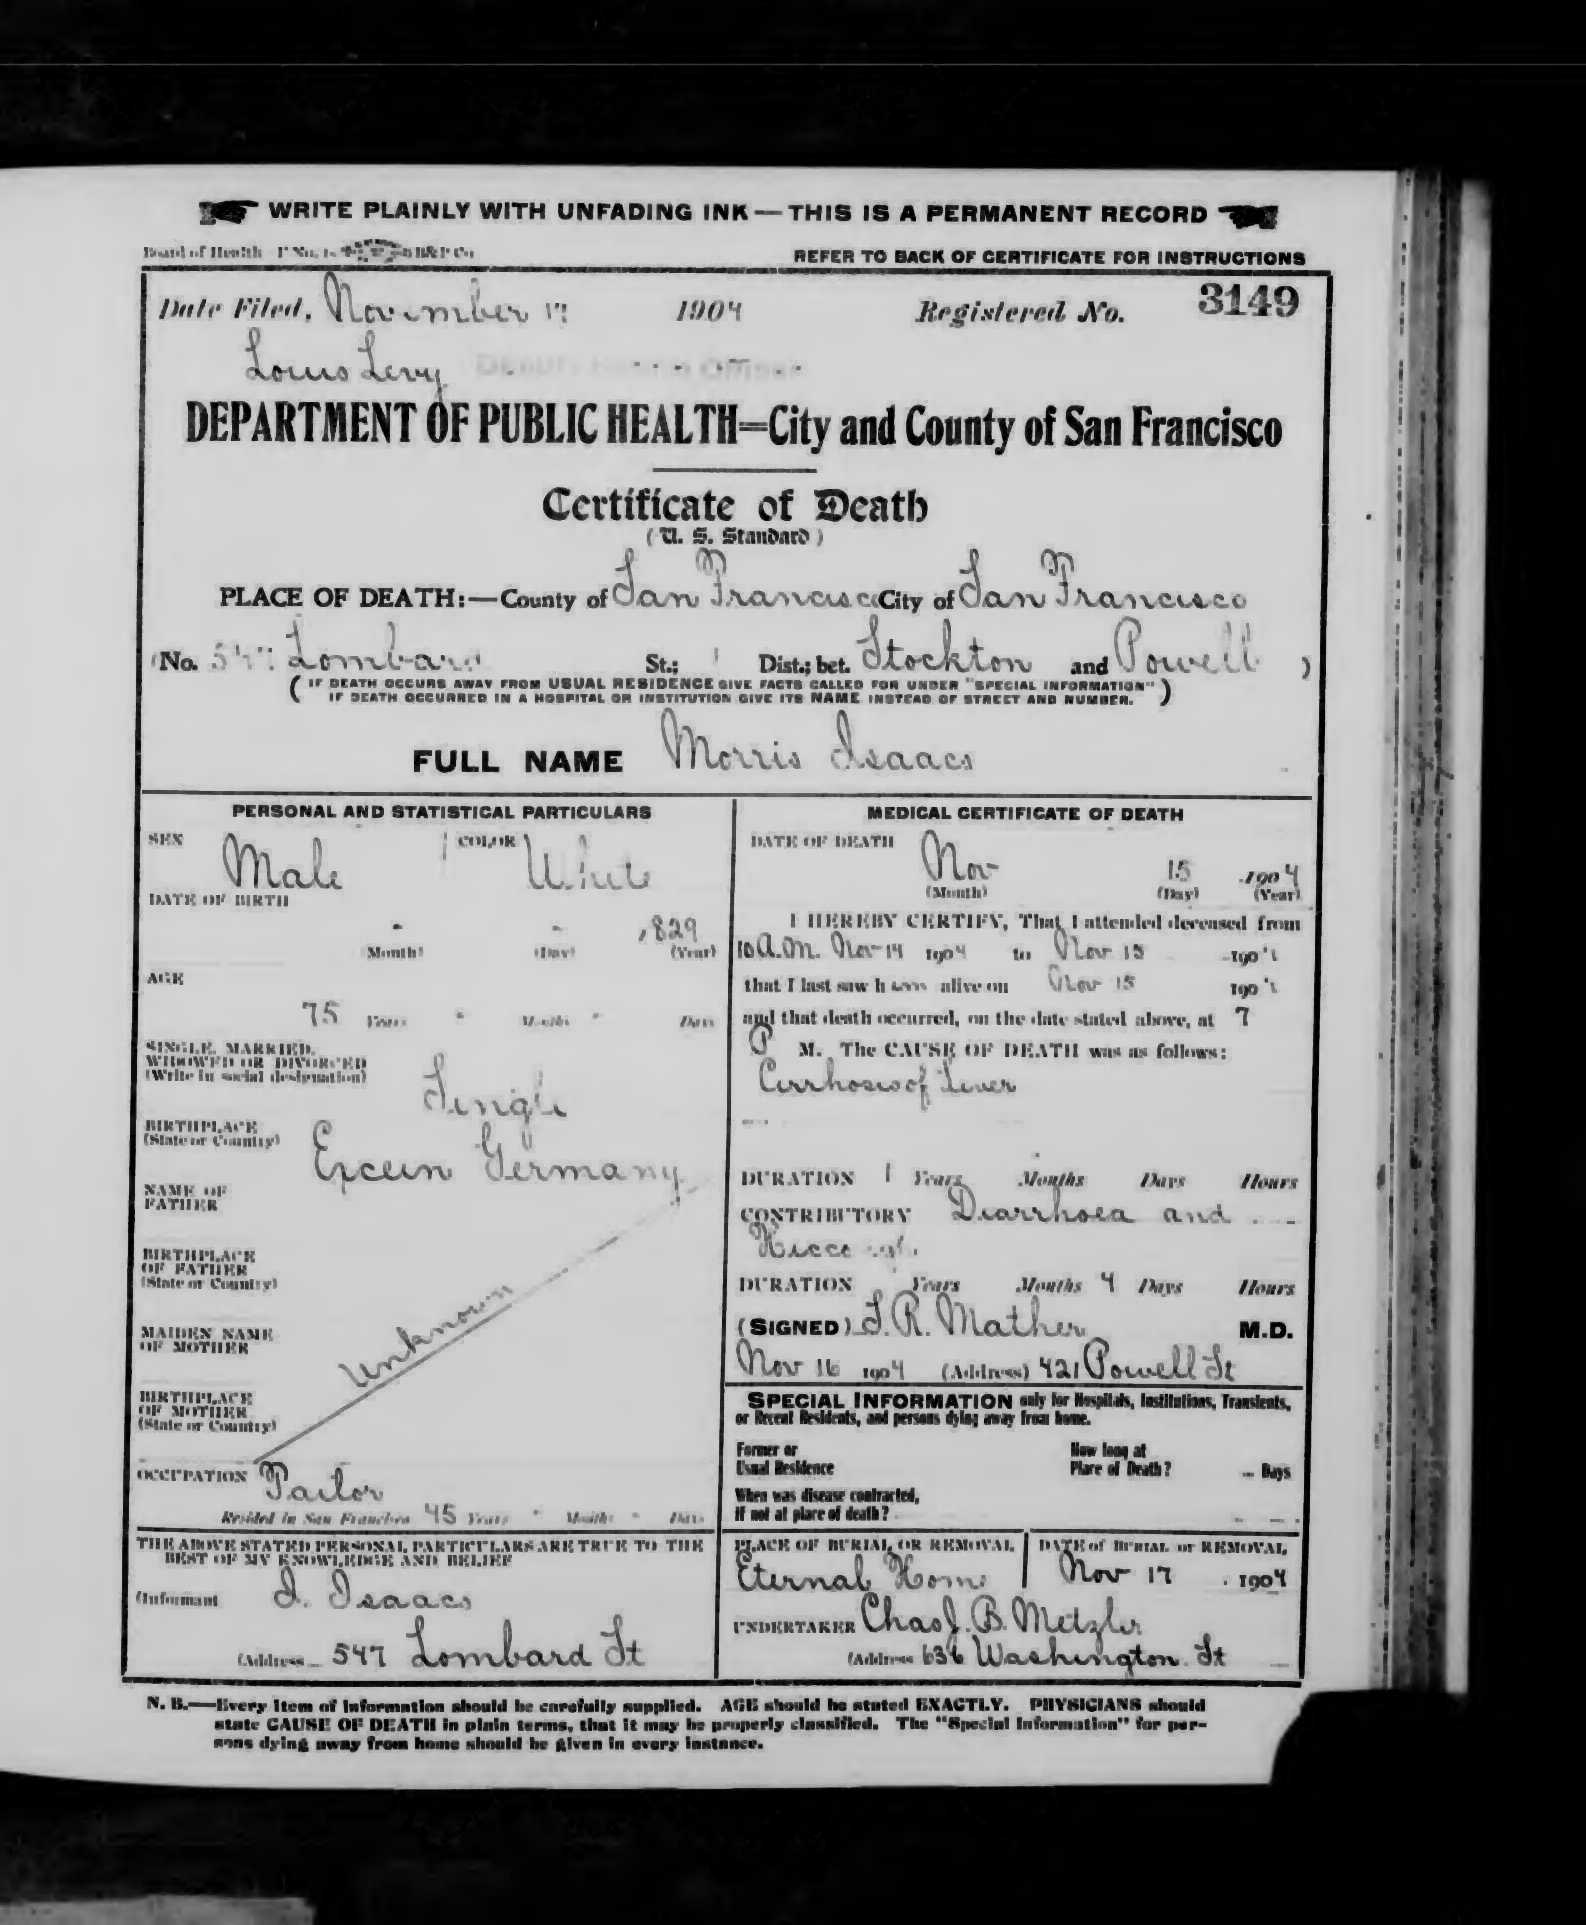 WRITE PLAINLY WITH UNFADING INK — THIS IS A PERMANENT RECORD
Board of Health B&P Co
REFER TO BACK OF CERTIFICATE FOR INSTRUCTIONS
Date Filed, November 17 1904 Registered No. 3149
Louis Levy
DEPARTMENT OF PUBLIC HEALTH=City and County of San Francisco
Certificate of Death
(U. S. Standard)
PLACE OF DEATH:—County of San Francisco City of San Francisco
(No. 547 Lombard St.; 1 Dist.; bet. Stockton and Powell )
( IF DEATH OCCURS AWAY FROM USUAL RESIDENCE GIVE FACTS CALLED FOR UNDER "SPECIAL INFORMATION"
IF DEATH OCCURRED IN A HOSPITAL OR INSTITUTION GIVE ITS NAME INSTEAD OF STREET AND NUMBER. )
FULL NAME Morris Isaacs
PERSONAL AND STATISTICAL PARTICULARS
SEX Male COLOR White
DATE OF BIRTH
- - 1829
(Month) (Day) (Year)
AGE
75 Years - Months - Days
SINGLE, MARRIED,
WIDOWED OR DIVORCED
(Write in social designation) Single
BIRTHPLACE
(State or Country) Excein Germany
NAME OF
FATHER
BIRTHPLACE
OF FATHER
(State or Country)
Unknown
MAIDEN NAME
OF MOTHER
BIRTHPLACE
OF MOTHER
(State or Country)
OCCUPATION Tailor
Resided in San Francisco 45 Years - Months - Days
THE ABOVE STATED PERSONAL PARTICULARS ARE TRUE TO THE
BEST OF MY KNOWLEDGE AND BELIEF
(Informant I. Isaacs
(Address 547 Lombard St
MEDICAL CERTIFICATE OF DEATH
DATE OF DEATH
Nov 15 1904
(Month) (Day) (Year)
I HEREBY CERTIFY, That I attended deceased from
10 A.M. Nov 14 1904 to Nov 15 1904
that I last saw h alive on Nov 15 1904
and that death occurred, on the date stated above, at 7
P M. The CAUSE OF DEATH was as follows:
Cirrhosis of Liver
DURATION 1 Years Months Days Hours
CONTRIBUTORY Diarrhoea and
Hiccough
DURATION Years Months 4 Days Hours
(SIGNED) T. R. Mather M.D.
Nov 16 1904 (Address) 421 Powell St
SPECIAL INFORMATION only for Hospitals, Institutions, Transients,
or Recent Residents, and persons dying away from home.
Former or
Usual Residence
How long at
Place of Death? Days
When was disease contracted,
If not at place of death?
PLACE OF BURIAL OR REMOVAL
Eternal Home
DATE of BURIAL or REMOVAL
Nov 17 1904
UNDERTAKER Chas. J. B. Metzler
(Address 636 Washington St
N. B.—Every item of information should be carefully supplied. AGE should be stated EXACTLY. PHYSICIANS should
state CAUSE OF DEATH in plain terms, that it may be properly classified. The "Special Information" for per-
sons dying away from home should be given in every instance.